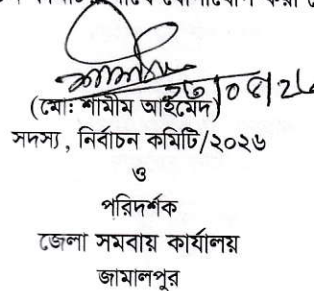 (মোঃ শামীম আহমেদ)
সদস্য, নির্বাচন কমিটি/২০২৬
ও
পরিদর্শক
জেলা সমবায় কার্যালয়
জামালপুর